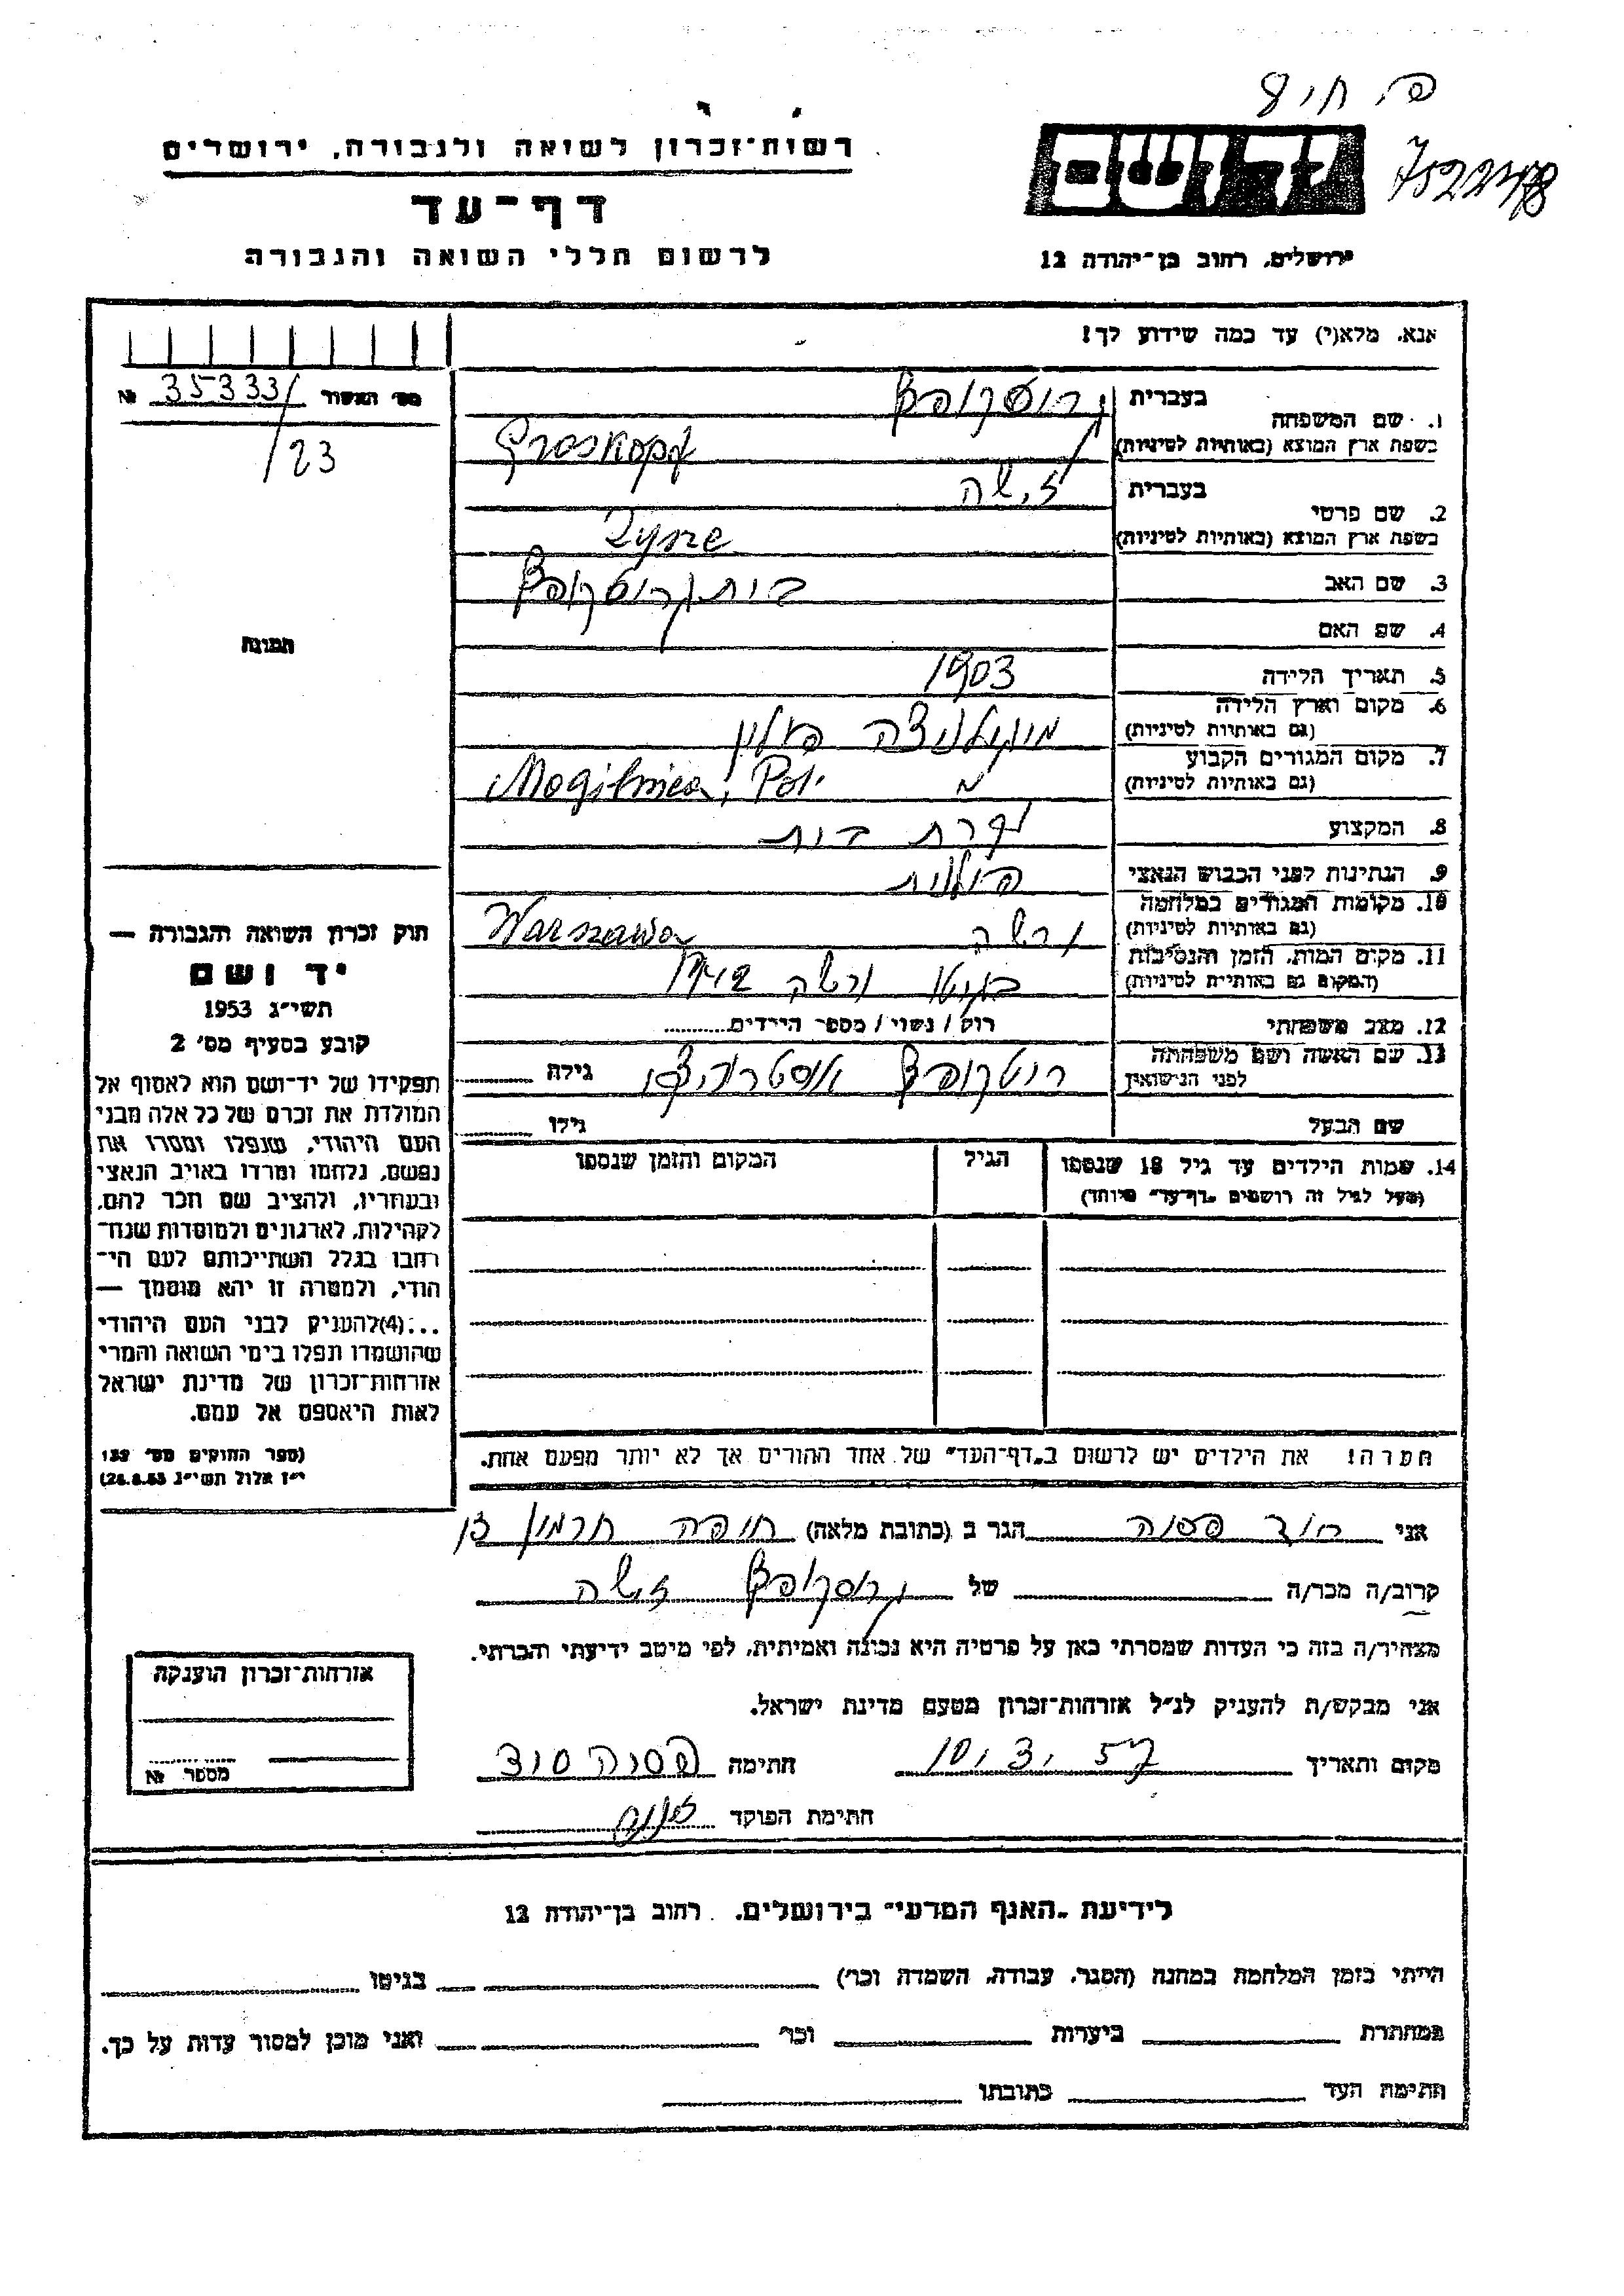 רשות־זכרון לשואה ולגבורה, ירושלים
דף־עד
לרשום חללי השואה והגבורה
ירושלים, רחוב בן־יהודה 12
אנא, מלא(י) עד כמה שידוע לך!
מס׳ האשור 35333/ №
/23
בעברית גרוסקופף
1. שם המשפחה
בשפת ארץ המוצא (באותיות לטיניות) Groskopf
בעברית זישה
2. שם פרטי
בשפת ארץ המוצא (באותיות לטיניות) Zysze
3. שם האב
4. שם האם
תמונה
5. תאריך הלידה 1903
6. מקום וארץ הלידה
(גם באותיות לטיניות) מוגילניצה פולין
7. מקום המגורים הקבוע
(גם באותיות לטיניות) Mogilnica, Pol
8. המקצוע עקרת בית
9. הנתינות לפני הכבוש הנאצי פולנית
10. מקומות המגורים במלחמה
(גם באותיות לטיניות) ורשה Warszawa
11. מקום המות, הזמן והנסיבות
(המקום גם באותיות לטיניות) בגיטו ורשה 1942
12. מצב משפחתי רוק / נשוי / מספר הילדים
13. שם האשה ושם משפחתה
לפני הנישואין גילה
שם הבעל גילו
14. שמות הילדים עד גיל 18 שנספו הגיל המקום והזמן שנספו
(מעל לגיל זה רושמים „דף־עד״ מיוחד)
הערה! את הילדים יש לרשום ב„דף־העד״ של אחד ההורים אך לא יותר מפעם אחת.
חוק זכרון השואה והגבורה —
יד ושם
תשי״ג 1953
קובע בסעיף מס׳ 2
תפקידו של יד־ושם הוא לאסוף אל
המולדת את זכרם של כל אלה מבני
העם היהודי, שנפלו ומסרו את
נפשם, נלחמו ומרדו באויב הנאצי
ובעוזריו, ולהציב שם וזכר להם,
לקהילות, לארגונים ולמוסדות שנח־
רבו בגלל השתייכותם לעם הי־
הודי, ולמטרה זו יהא מוסמך —
...(4)להעניק לבני העם היהודי
שהושמדו ונפלו בימי השואה והמרי
אזרחות־זכרון של מדינת ישראל
לאות היאספם אל עמם.
(ספר החוקים מס׳ 132
י״ז אלול תשי״ג 28.8.53)
אני הגר ב (כתובת מלאה) חיפה
קרוב/ה מכר/ה של גרוסקופף זישה
מצהיר/ה בזה כי העדות שמסרתי כאן על פרטיה היא נכונה ואמיתית, לפי מיטב ידיעתי והכרתי.
אני מבקש/ת להעניק לנ״ל אזרחות־זכרון מטעם מדינת ישראל.
מקום ותאריך חתימה
חתימת הפוקד
אזרחות־זכרון הוענקה
מספר №
לידיעת „האגף המדעי״ בירושלים, רחוב בן־יהודה 12
הייתי בזמן המלחמה במחנה (הסגר, עבודה, השמדה וכו׳) בגיטו
במחתרת ביערות וכו׳ ואני מוכן למסור עדות על כך.
חתימת העד כתובתו